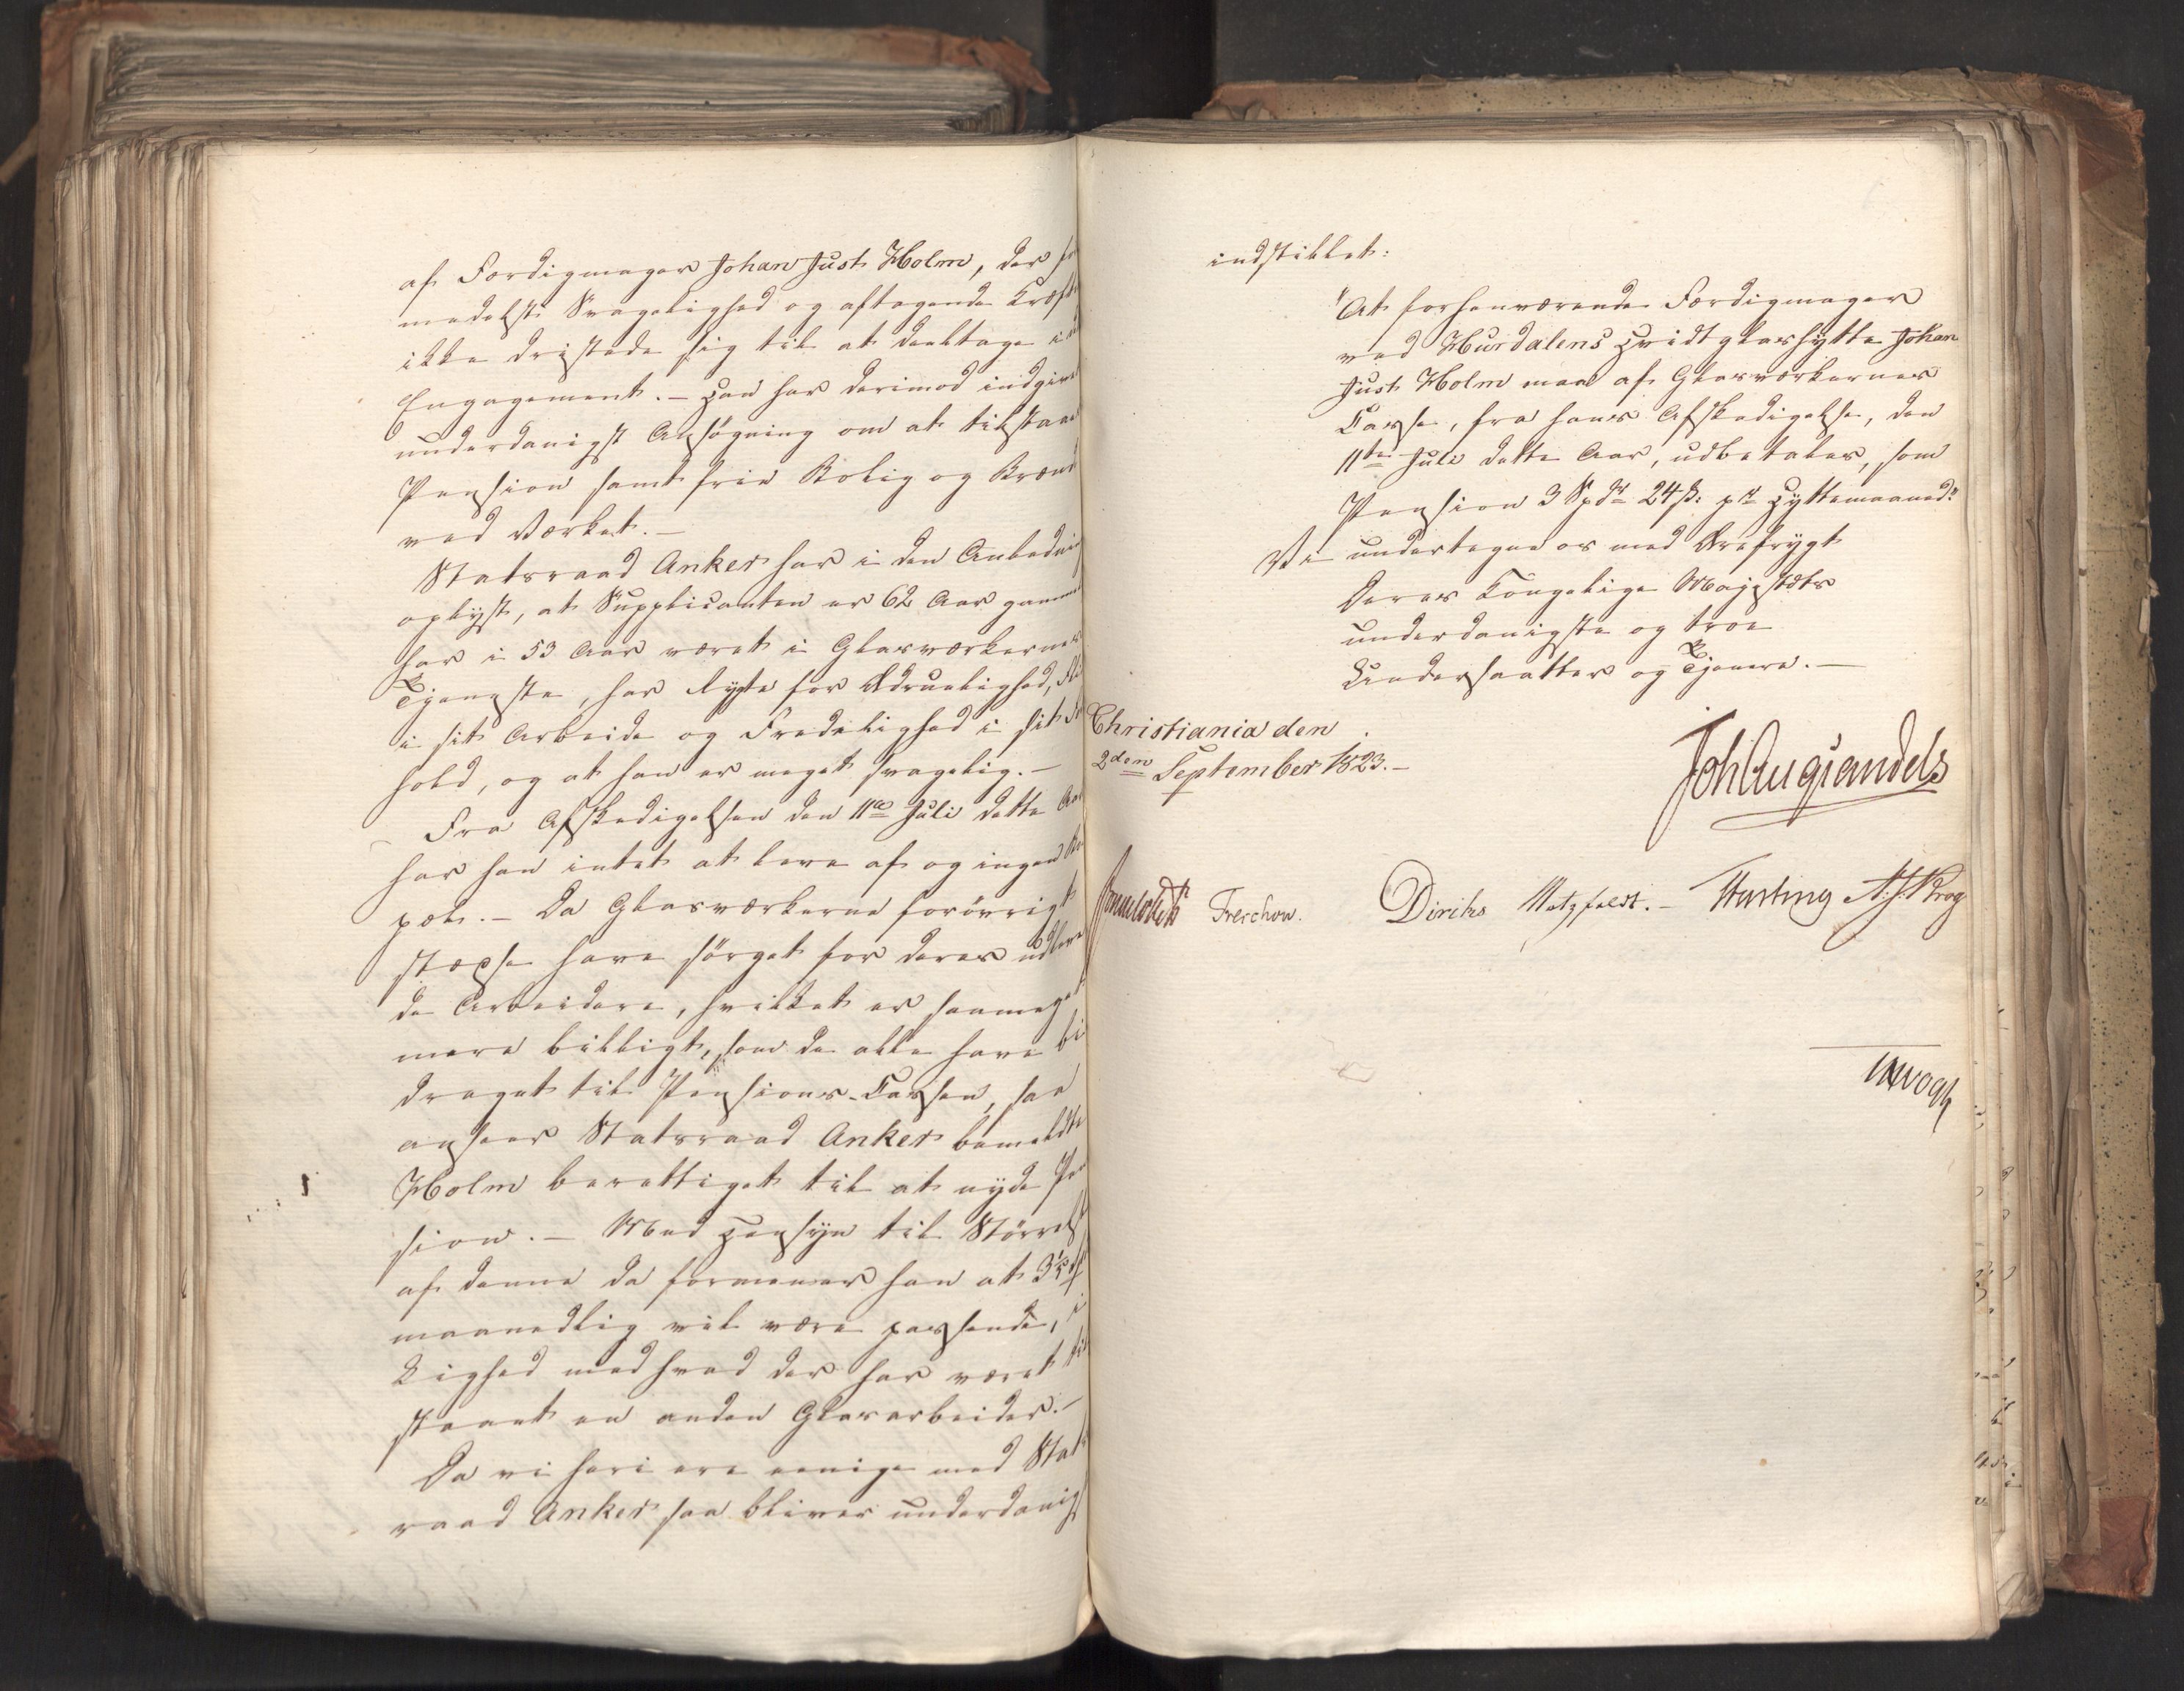 af Færdigmager Johan Just Holm, der for
medelst Svagelighed og aftagende Kræfter
ikke dristede sig til at deeltage i
Engagement. – Han har derimod indgivet
underdanigst Ansøgning om at tilstaaes
Pension samt frie Bolig og Brænde
ved Værket. –
Statsraad Anker har i den Anledning
oplyst, at Supplicanten er 62 Aar gammel
har i 53 Aar været i Glasværkernes
Tjeneste, har Rygte for Ædruelighed, Flid
i sit Arbeide og Fredelighed i sit For
hold, og at han er meget svagelig. –
Fra Afskedigelsen den 11te Juli dette Aar
har han intet at leve af og ingen
pæl. – Da Glasværkerne forövrigt
stedse have sörget for deres udleve
de Arbeidere, hvilket er saameget
mere billigt, som de alle have bi
draget til Pensions-Cassen, saa
anseer Statsraad Anker bemeldte
Holm berettiget til at nyde Pen
sion. – Med Hensyn til Störrelsen
af denne da formener han at 3 1/5
maanedlig vil være passende, i
Lighed med hvad der har været til
staaet en anden Glasarbeider. –
Da vi heri ere eenige med Stats
raad Anker saa bliver underdanigst
indstillet:
"At forhenværende Færdigmager
ved Hurdalens Hvidtglashytte Johan
Just Holm maae af Glasværkernes
Casse, fra hans Afskedigelse, den
11te Juli dette Aar, udbetales, som
Pension 3 Spdr 24 ß: pr Hyttemaaned."
Vi undertegne os med Ærefrygt
Deres Kongelige Majestæts
underdanigste og troe
Undersaatter og Tjenere. –
Christiania den
2den September 1823. –
Joh Aug Sandels
Sommerhielm Treschow. Diriks Motzfeldt. – Fasting A: J. Krog
Vogt